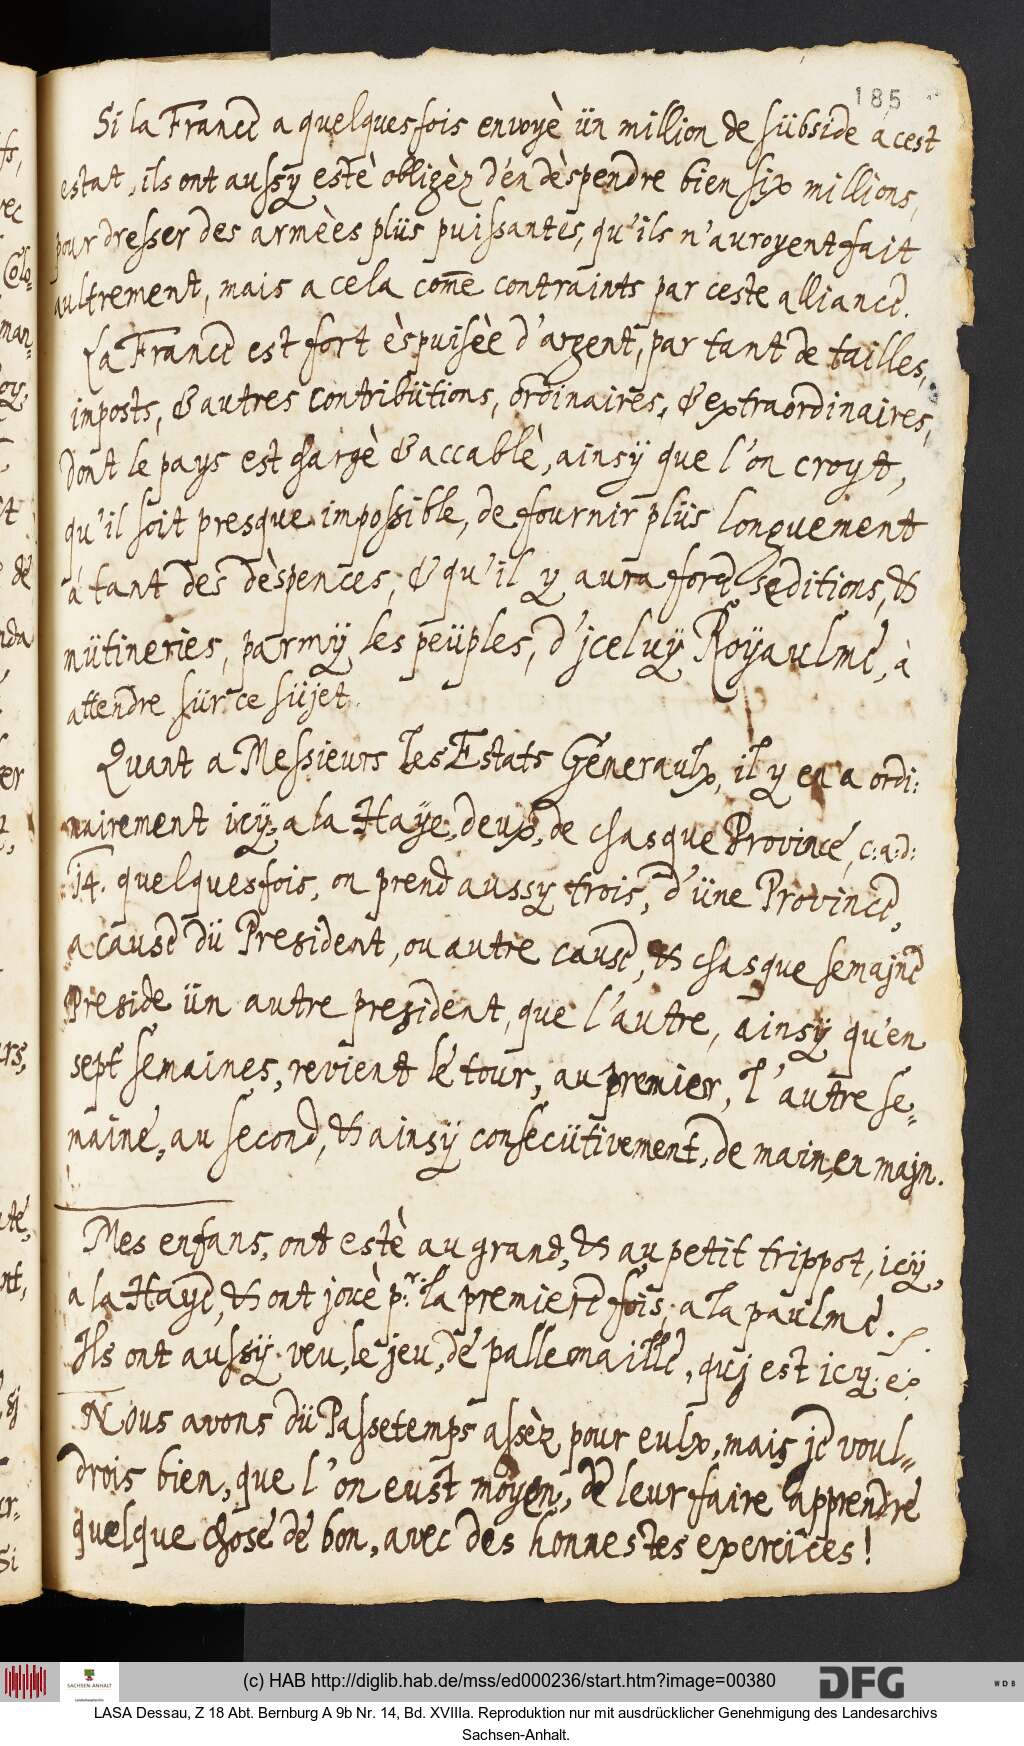 185
Si la France a quelquesfois envoyè ün million de sübside a cest
estat, ils ont aussy estè obligèz d'en dèspendre bien six millions,
pour dresser des armèes plüs puissantes, qu'ils n'auroyent fait
aultrement, mais a cela com̄e contraints par ceste alliance.
La France est fort èspuisèe d'argent, par tant de tailles,
imposts, & autres contribütions, ordinaires, & extraordinaires,
dont le pays est chargè & accablè, ainsÿ que l'on croyt,
qu'il soit presque impossible, de fournir plüs longuement
á tant des dèspences, & qu'il y aura force seditions, &
mütineries, parmÿ les peüples, d'jceluÿ Roÿaulme, à
attendre sür ce süjet.
Quant a Messieurs les Estats Generaulx, il y en a ordi:
nairement icy, a la Haÿe, deux, de chasque Province, c: a: d:
14. quelquesfois, on prend aussy trois, d'üne Province,
a cause dü President, ou autre cause, & chasque semajne
Preside ün autre president, que l'autre, ainsÿ qu'en
sept semaines, revient le tour, au premier, l'autre se-
maine, au second, & ainsÿ consecütivement, de main, en majn.
Mes enfans, ont estè au grand, & au petit trippot, icÿ,
a la Haye, & ont jouè pr. la premiere fois, a la paulme.
Ils ont aussÿ veu, le jeu, de pallemaille, quj est icy: ex
Nous avons dü Passetemps assèz pour eulx, mais je voul-
drois bien, que l'on eust moyen, de leur faire apprendre
quelque chose de bon, avec des honnestes exercices!
(c) HAB http://diglib.hab.de/mss/ed000236/start.htm?image=00380
SACHSEN-ANHALT
DFG
WDB
LASA Dessau, Z 18 Abt. Bernburg A 9b Nr. 14, Bd. XVIIIa. Reproduktion nur mit ausdrücklicher Genehmigung des Landesarchivs
Sachsen-Anhalt.